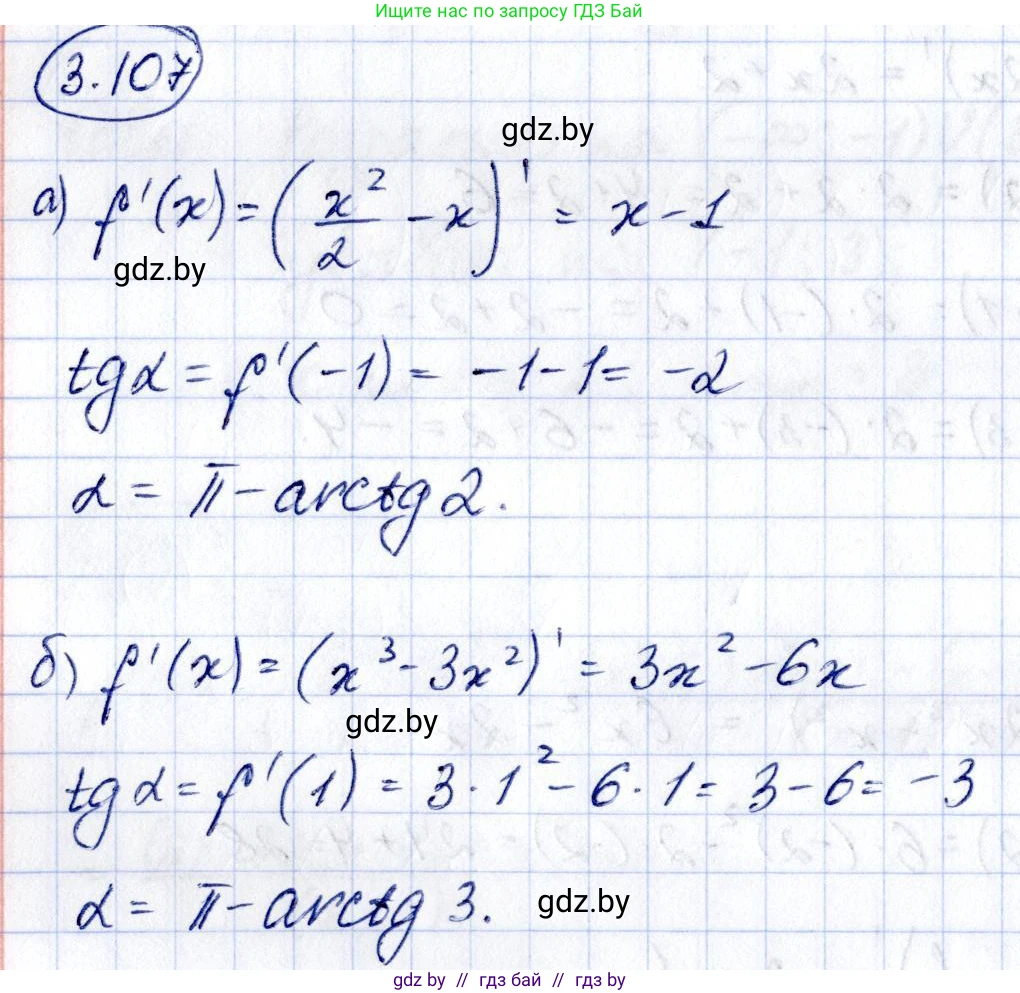 Ищите нас по запросу ГДЗ Бай
3.107
gdz.by
а) f'(x) = (x²/2 - x)' = x - 1
gdz.by
tg α = f'(-1) = -1 - 1 = -2
α = π - arctg 2.
б) f'(x) = (x³ - 3x²)' = 3x² - 6x
gdz.by
tg α = f'(1) = 3·1² - 6·1 = 3 - 6 = -3
α = π - arctg 3.
gdz.by
gdz.by // гдз бай // гдз by